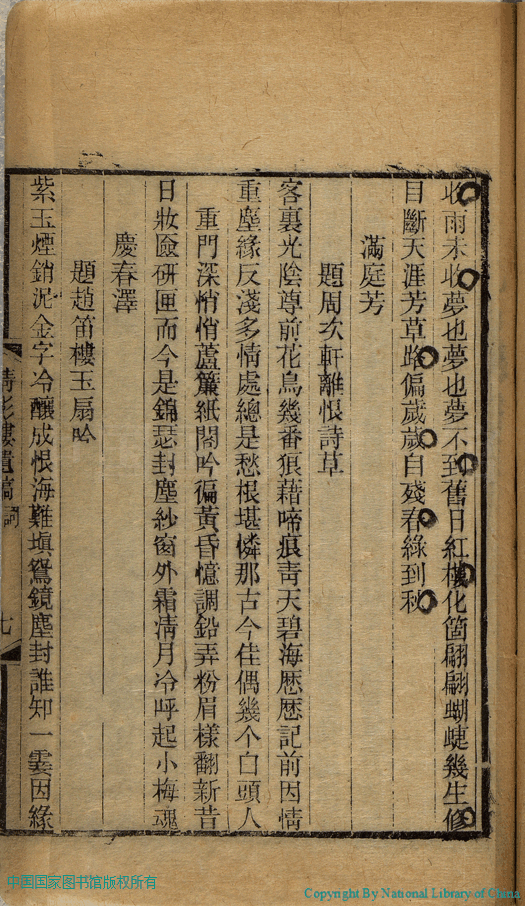 收雨未收夢也夢也夢不到舊日紅樓化箇翩翩蝴蜨幾生修
目斷天涯芳草路偏歲歲白殘春綠到秋
滿庭芳
題周次軒離恨詩草
客裏光陰尊前花鳥幾番狼藉啼痕靑天碧海愿愿記前因情
重塵緣反淺多情處總是愁根堪憐那古今佳偶幾个白頭人
重門深悄悄蘆簾紙閣吟徧黃昏憶調鉛弄粉眉樣翻新昔
日妝匳硏匣而今是錦瑟封塵紗窗外霜淸月冷呼起小梅魂
慶春澤
題趙笛樓玉扇吟
紫玉煙銷泥金字冷釀成恨海難塡鴛鏡塵封誰知一霎因緣
情影樓遺稿 詞
七
中国国家图书馆版权所有
Copyright By National Library of China